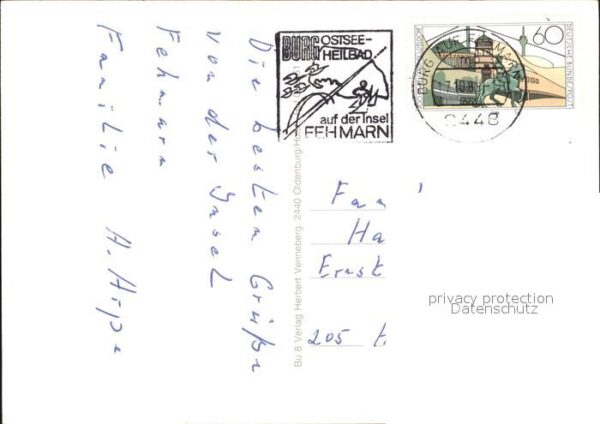 Die besten Grüße
von der Insel
Fehmarn
Familie A.
BURG OSTSEE-
HEILBAD
auf der Insel
FEHMARN
BURG AUF FEHMARN
2448
60
DEUTSCHE BUNDESPOST
Bu 8 Verlag Herbert Venneberg 2440 Oldenburg/Hol
Ha
Ernst
205
privacy protection
Datenschutz